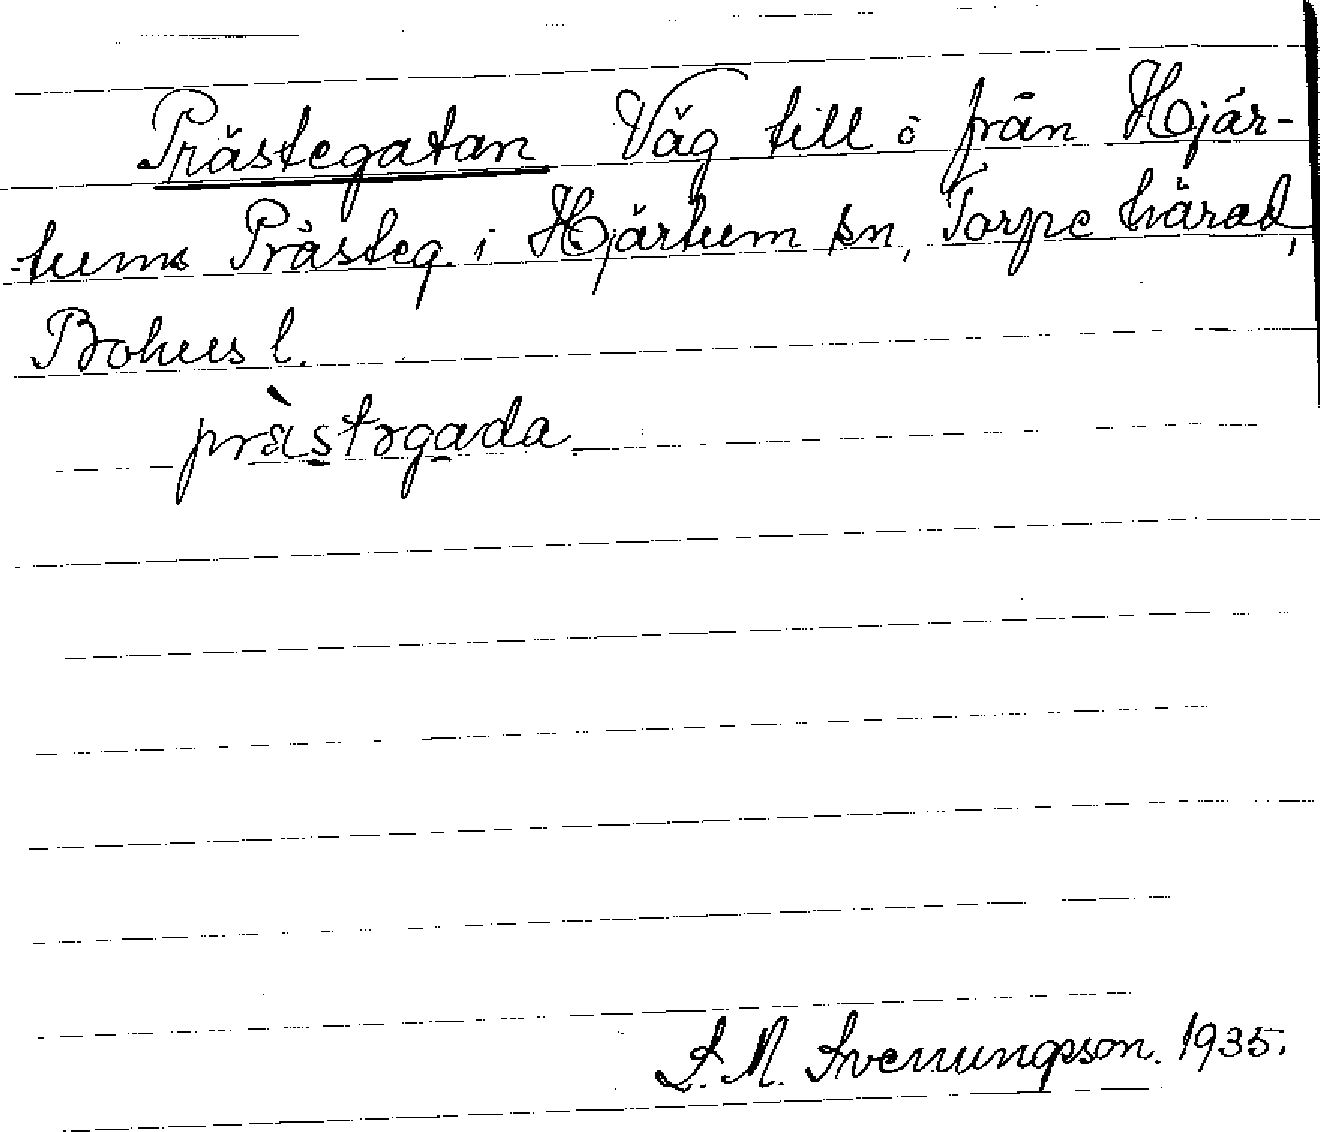 Prästegatan Väg till o från Hjär-
tums Prästeg. i Hjärtum sn, Torpe härad,
Bohus l.
prà̀strgada
S. M. Svenungsson. 1935.